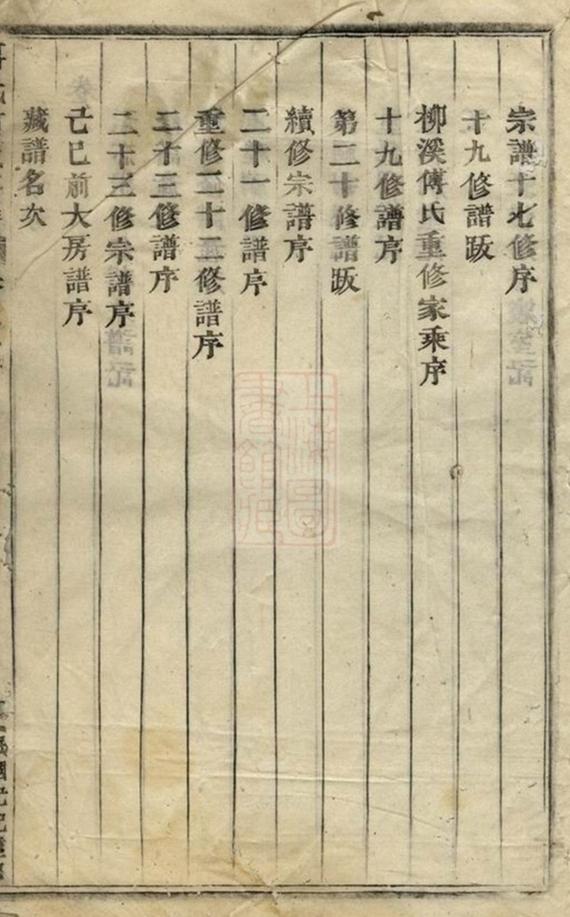 宗譜十七修序
十九修譜跋
柳溪傅氏重修家乘序
十九修譜序
第二十修譜跋
續修宗譜序
二十一修譜序
重修二十二修譜序
二十三修譜序
二十三修宗譜序
己巳前大房譜序
藏譜名次